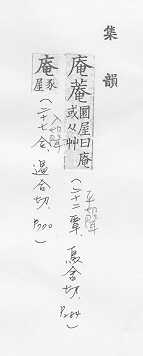 集韻
庵菴圜屋曰庵或从艸（平聲二十二覃 烏含切. P284）
庵豕屋（入聲二十七合 遏合切）